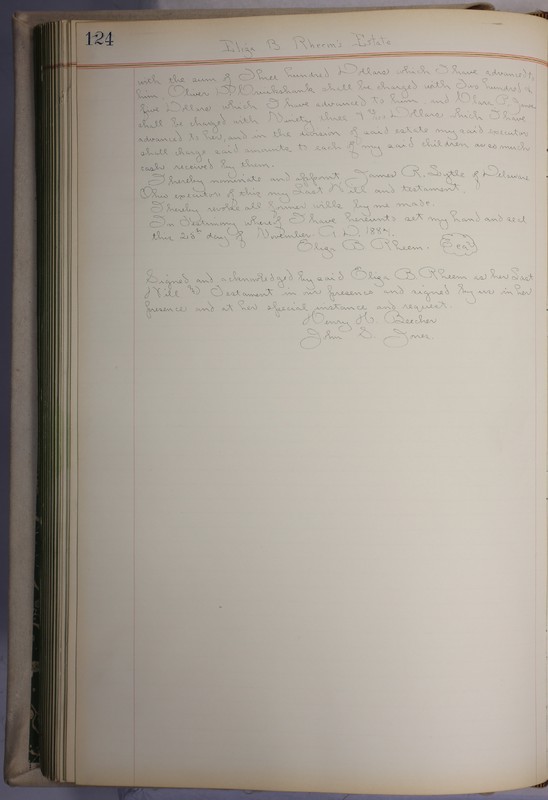 124
Eliza B. Rheem's Estate
with the sum of Three hundred Dollars which I have advanced to
him, Oliver P. shall be charged with Two hundred &
five Dollars which I have advanced to him, and P. Jones
shall be charged with Ninety three & Dollars which I have
advanced to her, and in the division of said estate my said executor
shall charge said amounts to each of my said children as so much
cash received by them.
I hereby nominate and appoint James R. Lytle of Delaware
Ohio executor of this my Last Will and testament.
I hereby revoke all former wills by me made.
In Testimony whereof I have hereunto set my hand and seal
this 25th day of November A.D. 1887.
Eliza B Rheem. Seal
Signed and acknowledged by said Eliza B. Rheem as her Last
Will & Testament in our presence and signed by us in her
presence and at her special instance and request.
Henry H. Beecher
John S. Jones.